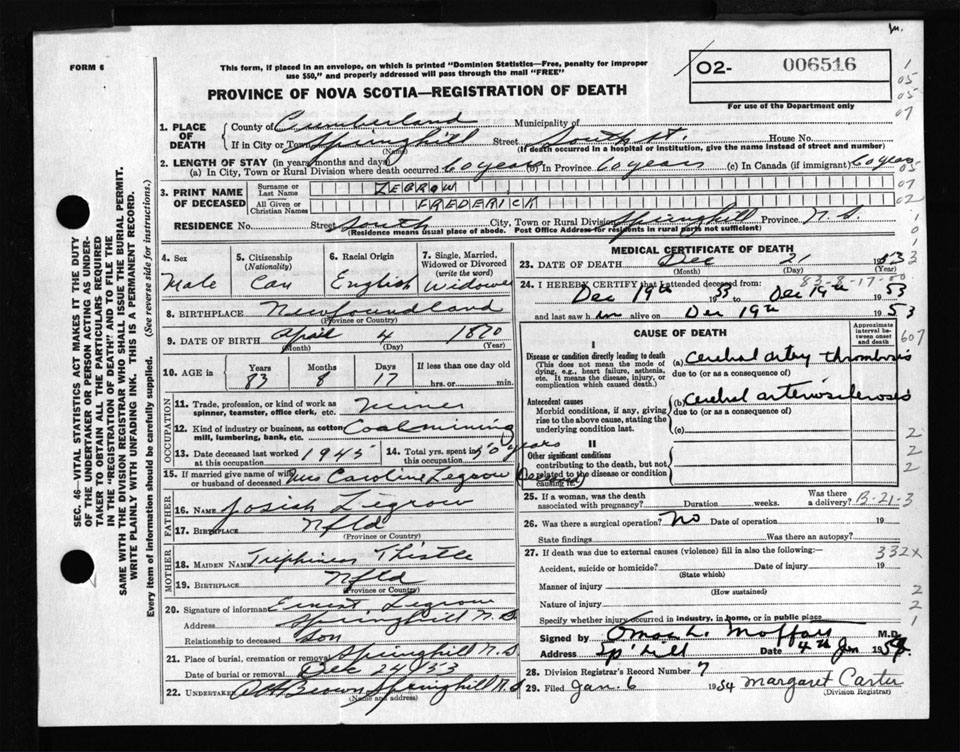 FORM 6
This form, if placed in an envelope, on which is printed "Dominion Statistics—Free, penalty for improper
use $50," and properly addressed will pass through the mail "FREE"
PROVINCE OF NOVA SCOTIA—REGISTRATION OF DEATH
02- 006516
For use of the Department only
1. PLACE OF DEATH
County of Cumberland Municipality of
If in City or Town Springhill Street South St. House No.
(Name) (If death occurred in a hospital or institution, give the name instead of street and number)
2. LENGTH OF STAY (in years, months and days)
(a) In City, Town or Rural Division where death occurred 60 years (b) In Province 60 years (c) In Canada (if immigrant) 60 years
3. PRINT NAME OF DECEASED
Surname or Last Name LEGROW
All Given or Christian Names FREDERICK
RESIDENCE No. Street South City, Town or Rural Division Springhill Province N.S.
(Residence means usual place of abode. Post Office Address for residents in rural parts not sufficient)
4. Sex Male
5. Citizenship (Nationality) Can
6. Racial Origin English
7. Single, Married, Widowed or Divorced (write the word) Widowed
8. BIRTHPLACE Newfoundland
(Province or Country)
9. DATE OF BIRTH April 4 1870
(Month) (Day) (Year)
10. AGE in Years 83 Months 8 Days 17 If less than one day old hrs. or min.
OCCUPATION
11. Trade, profession, or kind of work as spinner, teamster, office clerk, etc. Miner
12. Kind of industry or business, as cotton mill, lumbering, bank, etc. Coal mining
13. Date deceased last worked at this occupation 1945
14. Total yrs. spent in this occupation 50 years
15. If married give name of wife or husband of deceased Mrs Caroline Legrow (Deceased)
FATHER
16. Name Josiah Legrow
17. Birthplace Nfld
(Province or Country)
MOTHER
18. Maiden Name Thistle
19. Birthplace Nfld
(Province or Country)
20. Signature of informant Ernest Legrow
Address Springhill N.S.
Relationship to deceased Son
21. Place of burial, cremation or removal Springhill N.S.
Date of burial or removal Dec 24 / 53
22. Undertaker Brown Springhill N.S.
(Name and address)
MEDICAL CERTIFICATE OF DEATH
23. DATE OF DEATH Dec 21 1953
(Month) (Day) (Year)
83-8-17
24. I HEREBY CERTIFY that I attended deceased from:
Dec 19th 53 to Dec 19th 1953
and last saw him alive on Dec 19th 1953
CAUSE OF DEATH
Approximate interval between onset and death
I
Disease or condition directly leading to death
(This does not mean the mode of dying, e.g., heart failure, asthenia, etc. It means the disease, injury, or complication which caused death.)
(a) Cerebral artery thrombosis
due to (or as a consequence of)
Antecedent causes
Morbid conditions, if any, giving rise to the above cause, stating the underlying condition last.
(b) Cerebral arteriosclerosis
due to (or as a consequence of)
(c)
II
Other significant conditions
contributing to the death, but not related to the disease or condition causing it.
25. If a woman, was the death associated with pregnancy? Duration weeks. Was there a delivery? B-21-3
26. Was there a surgical operation? No Date of operation 19
State findings Was there an autopsy?
27. If death was due to external causes (violence) fill in also the following:
332x
Accident, suicide or homicide? Date of injury 19
(State which)
Manner of injury
(How sustained)
Nature of injury
Specify whether injury occurred in industry, in home, or in public place
Signed by L. Moffatt M.D.
Address Sp'hill Date 4th Jan 1954
28. Division Registrar's Record Number 7
29. Filed Jan. 6 1954 Margaret Carter
(Division Registrar)
SEC. 46—VITAL STATISTICS ACT MAKES IT THE DUTY
OF THE UNDERTAKER OR PERSON ACTING AS UNDER-
TAKER TO OBTAIN ALL THE PARTICULARS REQUIRED
IN THE "REGISTRATION OF DEATH" AND TO FILE THE
SAME WITH THE DIVISION REGISTRAR WHO SHALL ISSUE THE BURIAL PERMIT.
WRITE PLAINLY WITH UNFADING INK. THIS IS A PERMANENT RECORD.
Every item of information should be carefully supplied. (See reverse side for instructions.)
1
05
05
07
05
07
02
1
0
1
3
607
2
2
2
2
2
1